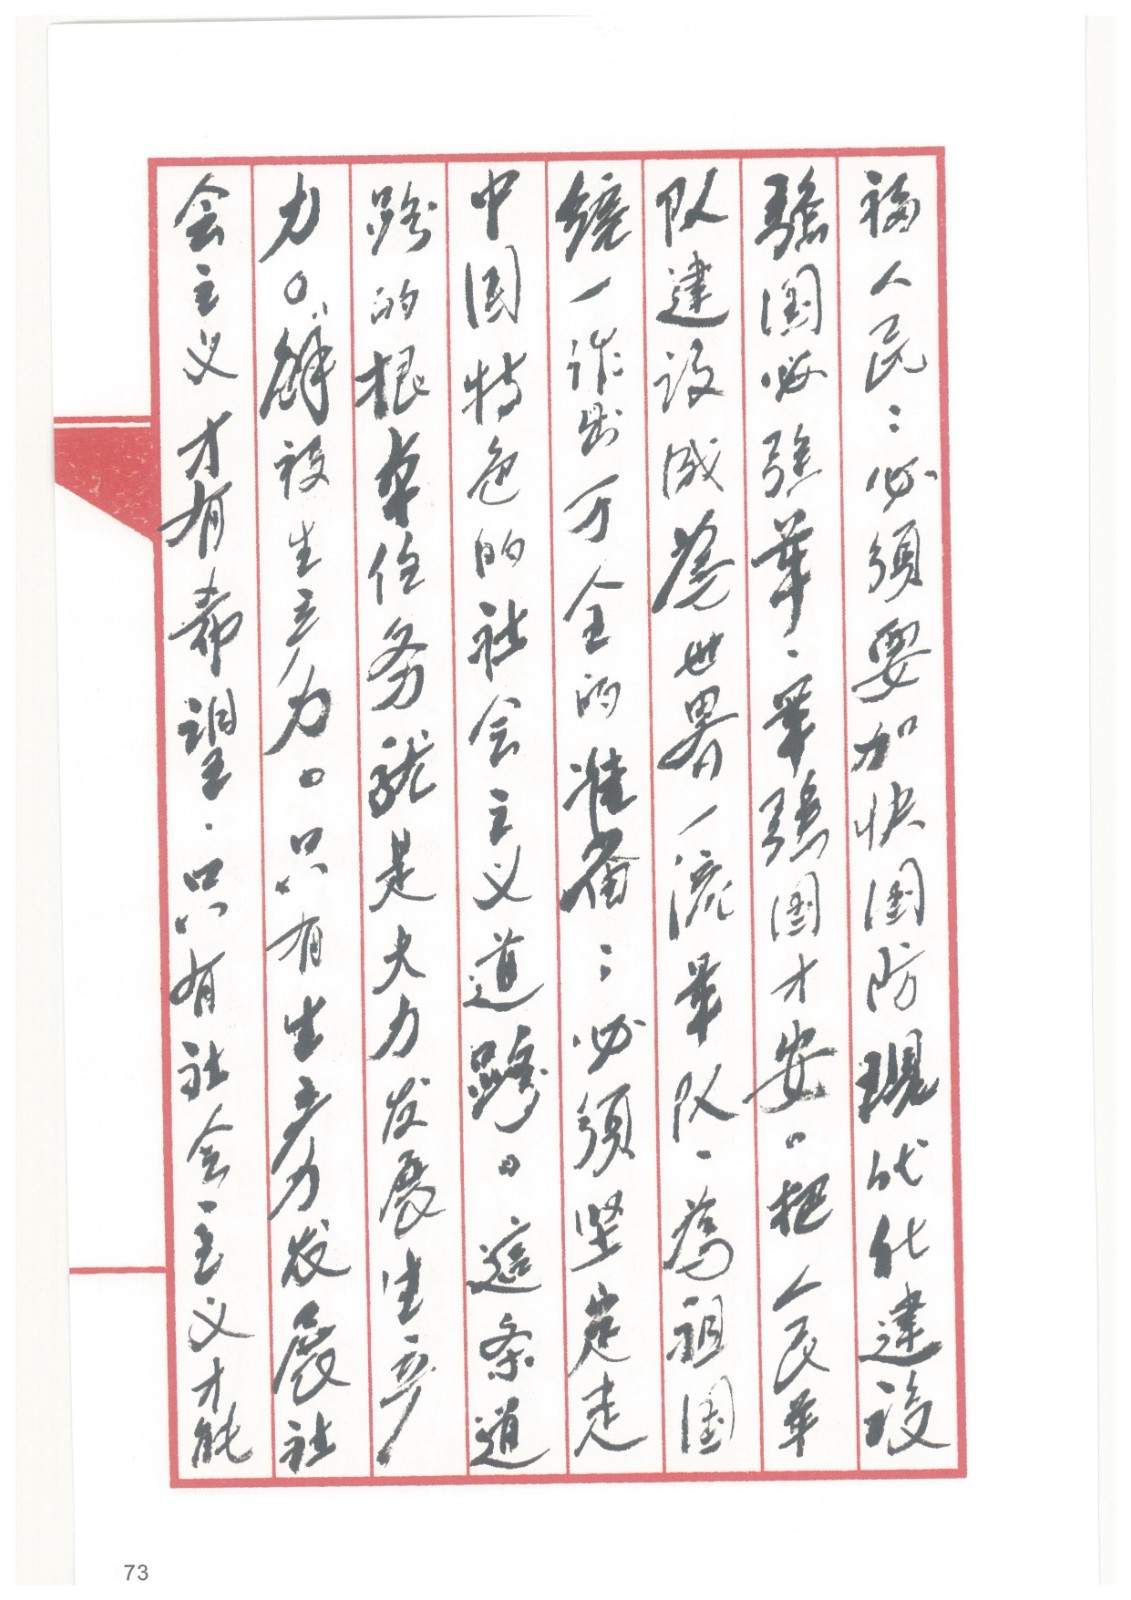 福人民；必须要加快国防现代化建设
强国必强军，军强国才安。把人民军
队建设成为世界一流军队，为祖国
统一作出万全的准备；必须坚定走
中国特色的社会主义道路。这条道
路的根本任务就是大力发展生产
力。解放生产力。只有生产力发展社
会主义才有希望，只有社会主义才能
73